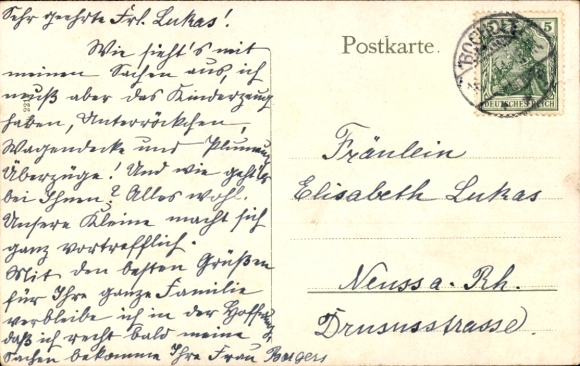 Sehr geehrte Frl. Lukas!
Wie sieht's mit
meinen Sachen aus, ich
muß aber das Kinderzeug
haben, Unterröckchen,
Wagendecke und
Überzüge! Und wie geht's
bei Ihnen? Alles wohl.
Unsere Kleine macht sich
ganz vortrefflich.
Mit den besten Grüßen
für Ihre ganze Familie
verbleibe ich in der Hoffnung
daß ich recht bald meine
Sachen bekomme Ihre Frau Borgers
Postkarte.
BOCHOLT
5
DEUTSCHES REICH
Fräulein
Elisabeth Lukas
Neuss a. Rh.
Drususstrasse.